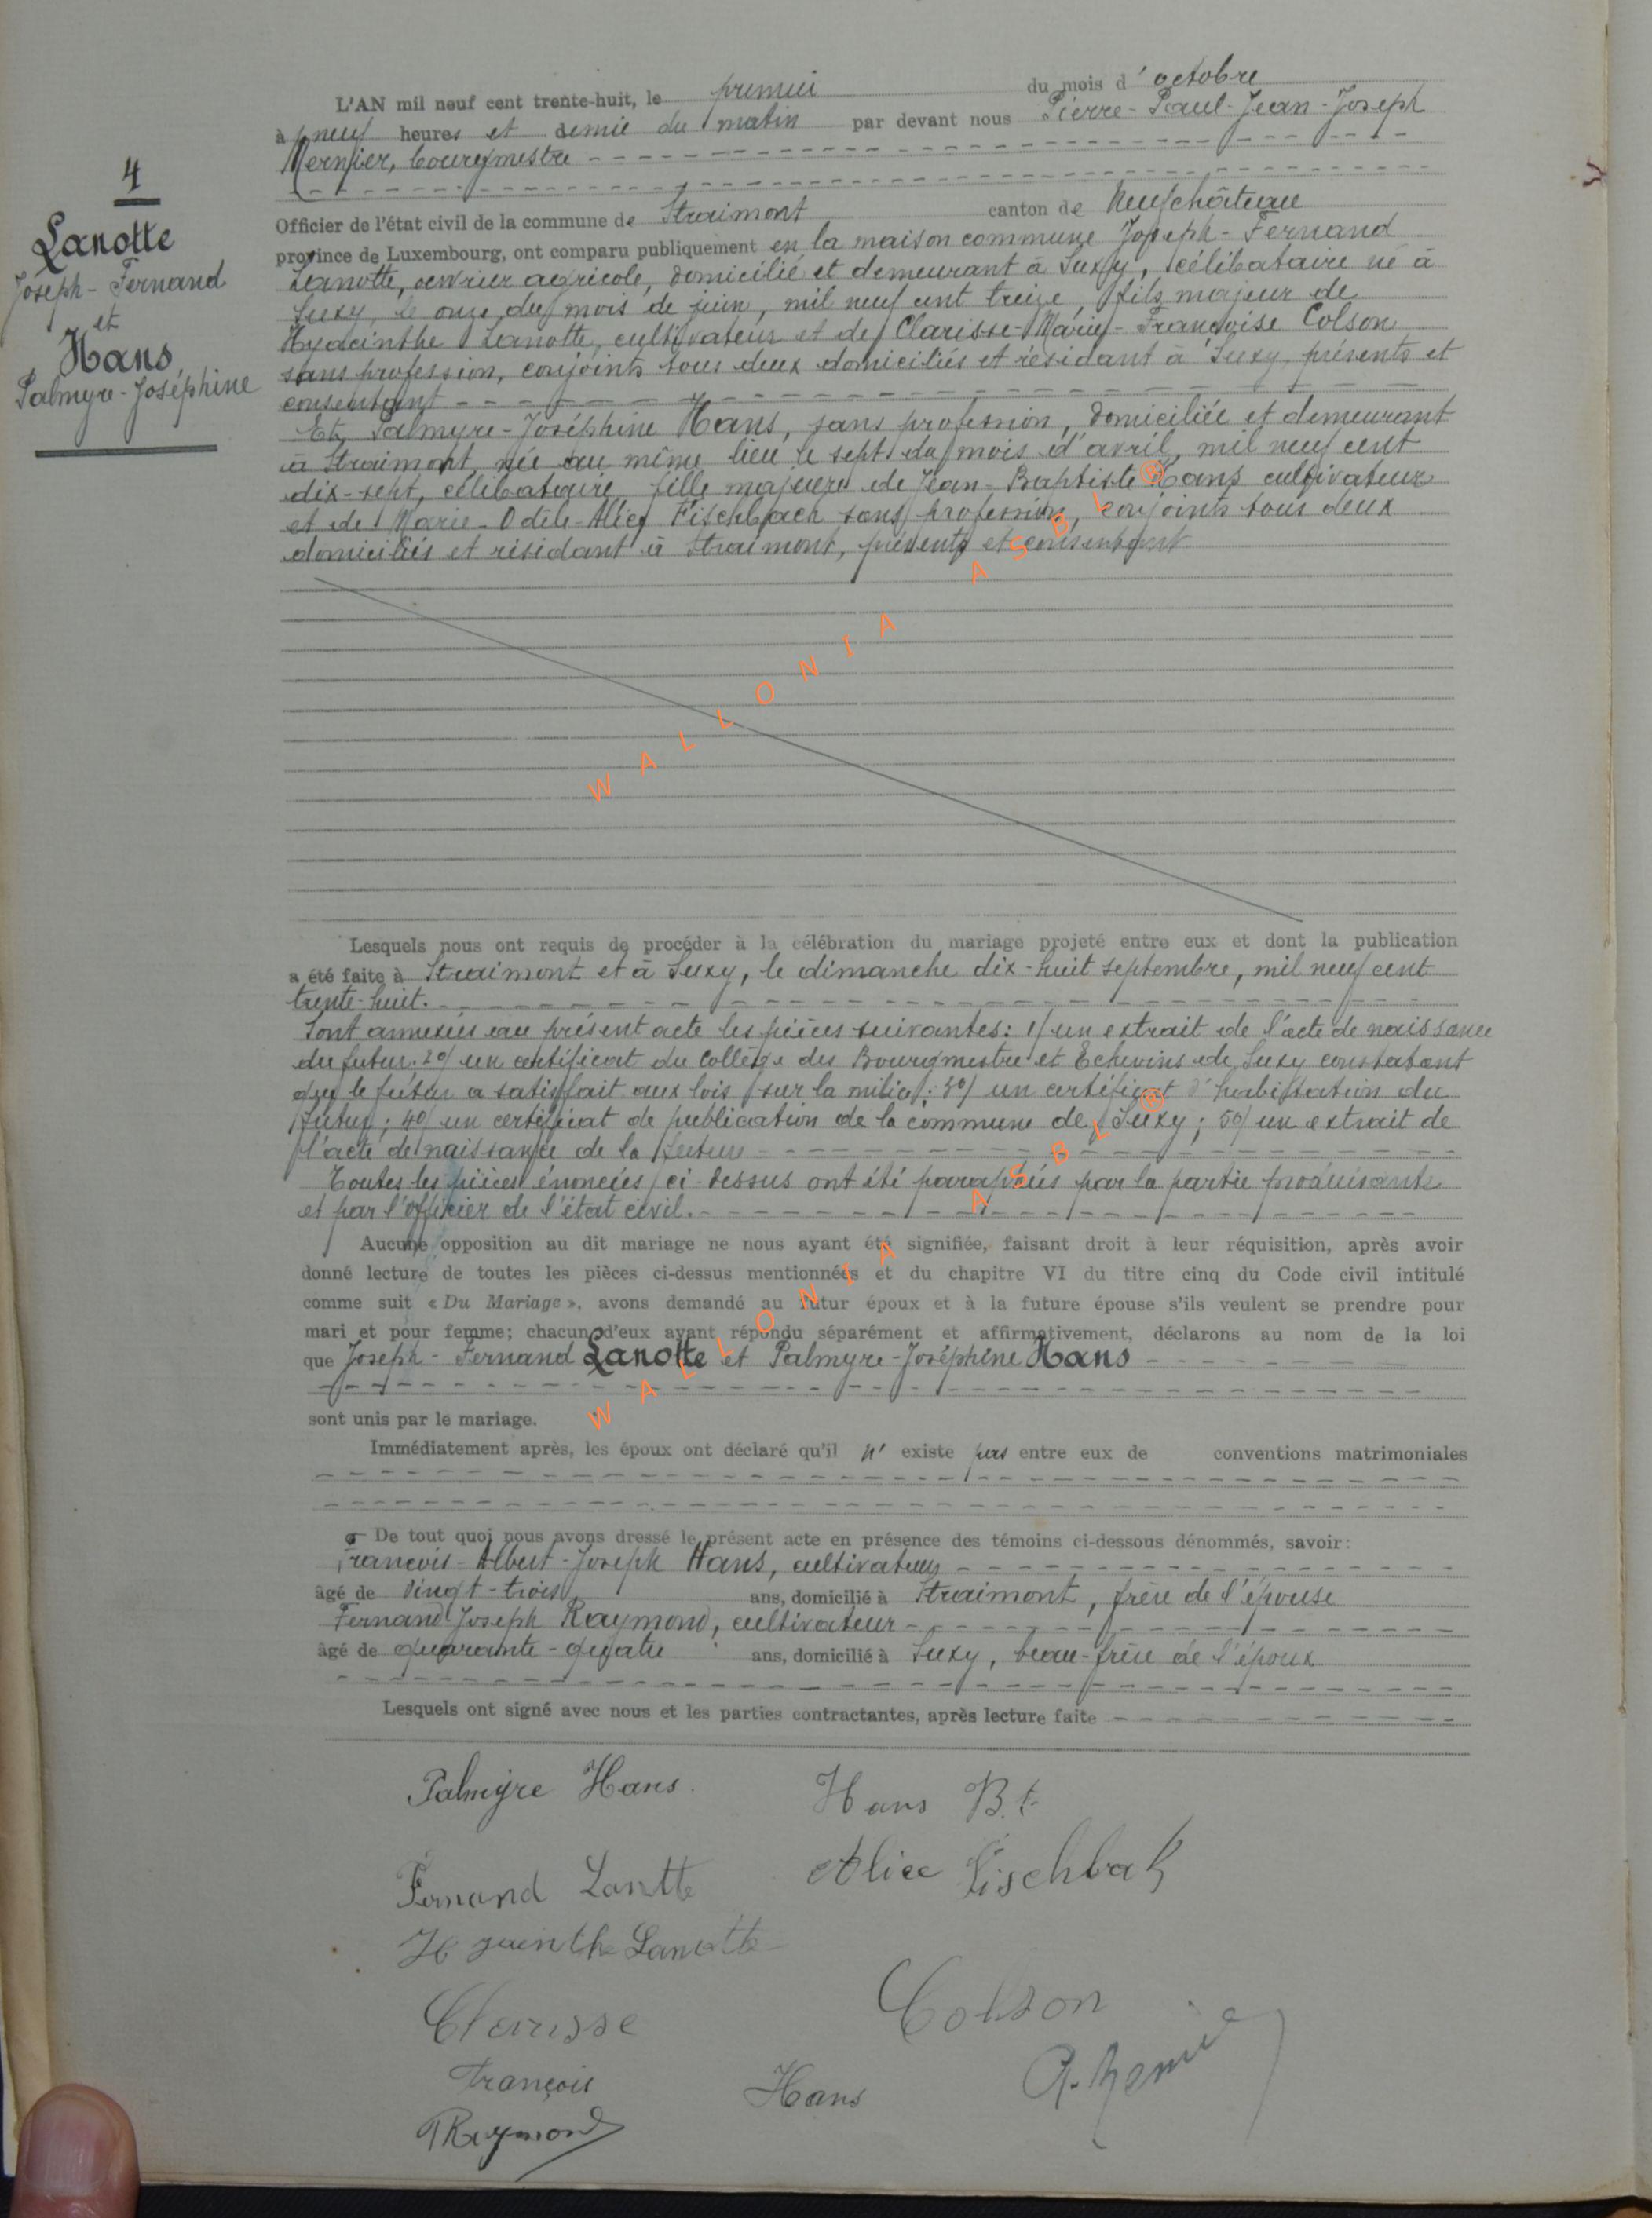 4
Lanotte
Joseph-Fernand
et
Hans
Palmyre-Joséphine
L'AN mil neuf cent trente-huit, le premier du mois d'octobre
à neuf heures et demie du matin par devant nous Pierre-Paul-Jean-Joseph
Mernier, bourgmestre
Officier de l'état civil de la commune de Straimont canton de Neufchâteau
province de Luxembourg, ont comparu publiquement en la maison commune Joseph-Fernand
Lanotte, ouvrier agricole, domicilié et demeurant à Suxy, célibataire né à
Suxy, le onze du mois de juin, mil neuf cent treize, fils majeur de
Hyacinthe Lanotte, cultivateur et de Clarisse-Marie-Françoise Colson
sans profession, conjoints tous deux domiciliés et résidant à Suxy, présents et
consentant
Et, Palmyre-Joséphine Hans, sans profession, domiciliée et demeurant
à Straimont, née au même lieu le sept du mois d'avril, mil neuf cent
dix-sept, célibataire, fille majeure de Jean-Baptiste Hans cultivateur
et de Marie-Odèle-Alice Fischbach sans profession, conjoints tous deux
domiciliés et résidant à Straimont, présents et consentant
WALLONIA ASBL ®
Lesquels nous ont requis de procéder à la célébration du mariage projeté entre eux et dont la publication
a été faite à Straimont et à Suxy, le dimanche dix-huit septembre, mil neuf cent
trente-huit.
Sont annexées au présent acte les pièces suivantes: 1/ un extrait de l'acte de naissance
du futur. 2o/ un certificat du Collège des Bourgmestre et Echevins de Suxy constatant
que le futur a satisfait aux lois sur la milice; 3o/ un certificat d'habitation du
futur; 4o/ un certificat de publication de la commune de Suxy; 5o/ un extrait de
l'acte de naissance de la future
Toutes les pièces énoncées ci-dessus ont été paraphées par la partie produisante
et par l'officier de l'état civil.
Aucune opposition au dit mariage ne nous ayant été signifiée, faisant droit à leur réquisition, après avoir
donné lecture de toutes les pièces ci-dessus mentionnées et du chapitre VI du titre cinq du Code civil intitulé
comme suit « Du Mariage », avons demandé au futur époux et à la future épouse s'ils veulent se prendre pour
mari et pour femme; chacun d'eux ayant répondu séparément et affirmativement, déclarons au nom de la loi
que Joseph-Fernand Lanotte et Palmyre-Joséphine Hans
WALLONIA ASBL ®
sont unis par le mariage.
Immédiatement après, les époux ont déclaré qu'il n' existe pas entre eux de conventions matrimoniales
De tout quoi nous avons dressé le présent acte en présence des témoins ci-dessous dénommés, savoir:
François-Albert-Joseph Hans, cultivateur
âgé de vingt-trois ans, domicilié à Straimont, frère de l'épouse
Fernand Joseph Raymond, cultivateur
âgé de quarante-quatre ans, domicilié à Suxy, beau-frère de l'époux
Lesquels ont signé avec nous et les parties contractantes, après lecture faite
Palmyre Hans. Hans Bt.
Fernand Lanotte Alice Fischbach
Hyacinthe Lanotte
Clarisse Colson
François Hans
Raymond